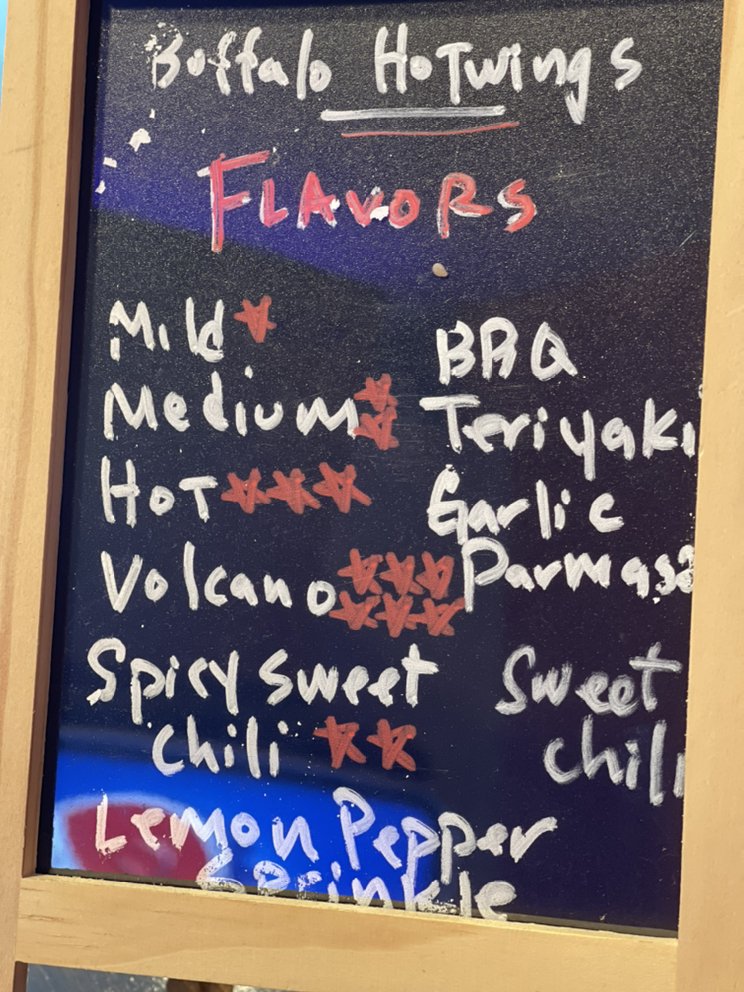 Buffalo HoTwings
FLAVORS
Mild
Medium
HoT
Volcano
Spicy sweet
chili
Lemon Pepper
Sprinkle
BBQ
Teriyaki
Garlic
Parmas
Sweet
chili